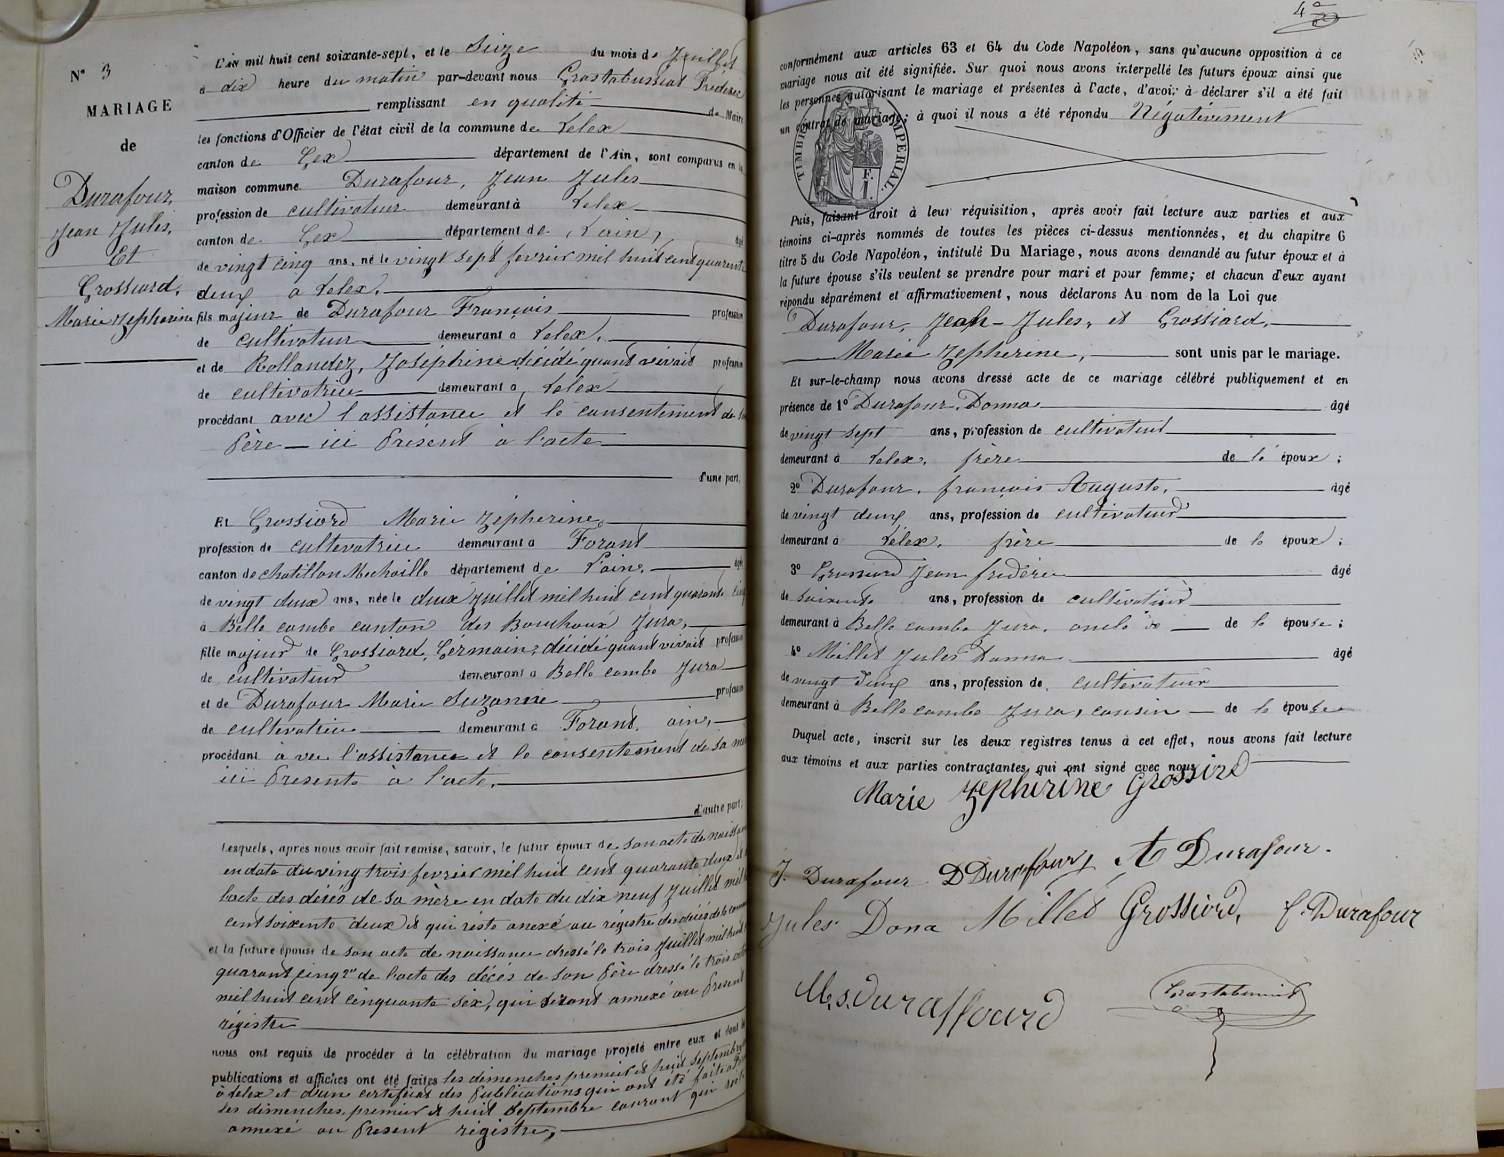 N° 3
MARIAGE
de
Durafour,
Jean Jules,
Et
Grossiord,
Marie Zepherine
L'an mil huit cent soixante-sept, et le Seize du mois de Juillet
à dix heure du matin par-devant nous Grostabussiat Frédéric
remplissant en qualité de Maire
les fonctions d'Officier de l'état civil de la commune de Lelex
canton de Gex département de l'Ain, sont comparus en la
maison commune Durafour, Jean Jules
profession de cultivateur demeurant à Lelex
canton de Gex département de L'ain, agé
de vingt cinq ans, né le vingt sept fevrier mil huit cent quarante
deux à Lelex.
fils majeur de Durafour François profession
de cultivateur demeurant à Lelex.
et de Rollandez, Joséphine décidé quand vivait profession
de cultivatrice demeurant à Lelex
procédant avec l'assistance et le consentement de son
Père ici Présent à l'acte
d'une part,
Et Grossiord Marie Zépherine,
profession de cultevatrice demeurant à Forant
canton de chatillon Michaille département de L'ain, agée
de vingt deux ans, née le deux juillet mil huit cent quarante cinq
à Belle combe canton des Bouchoux Jura,
fille majeur de Grossiord, Germain, décidé quand vivait profession
de cultivateur demeurant à Belle combe Jura
et de Durafour Marie Suzanne profession
de cultivatrice demeurant à Forant, ain,
procédant à vec l'assistance et le consentement de sa mère
ici Presente à l'acte.
d'autre part;
Lesquels, après nous avoir fait remise, savoir, le futur époux de son acte de naissance
en date du vingt trois fevrier mil huit cent quarante deux et
l'acte des décés de sa mère en date du dix neuf Juillet mil huit
cent soixente deux et qui réste anexé au régistre des décés de la commune
et la future épouse de son acte de naissance dressé le trois Juillet mil huit
quarant cinq 2° de l'acte des décés de son Père dressé le trois
mil huit cent cinquante six, qui séront annexé au Présent
régistre
nous ont requis de procéder à la célébration du mariage projeté entre eux et dont les
publications et affiches ont été faites les dimenches premier et huit septembre
à Lelex et d'une certificat des Publications qui ont été faites à
les dimenches premier et huit septembre courant qui
annexé au Présent régistre,
4
conformément aux articles 63 et 64 du Code Napoléon, sans qu'aucune opposition à ce
mariage nous ait été signifiée. Sur quoi nous avons interpellé les futurs époux ainsi que
les personnes autorisant le mariage et présentes à l'acte, d'avoir à déclarer s'il a été fait
un contrat de mariage; à quoi il nous a été répondu Négativement
TIMBRE IMPERIAL
F.
1.
Puis, faisant droit à leur réquisition, après avoir fait lecture aux parties et aux
témoins ci-après nommés de toutes les pièces ci-dessus mentionnées, et du chapitre 6
titre 5 du Code Napoléon, intitulé Du Mariage, nous avons demandé au futur époux et à
la future épouse s'ils veulent se prendre pour mari et pour femme; et chacun d'eux ayant
répondu séparément et affirmativement, nous déclarons Au nom de la Loi que
Durafour, Jean-Jules, et Grossiord,
Marie Zepherine, sont unis par le mariage.
Et sur-le-champ nous avons dressé acte de ce mariage célébré publiquement et en
présence de 1° Durafour, Donna âgé
de vingt sept ans, profession de cultivateur
demeurant à Lelex, frère de le époux;
2° Durafour, françois Auguste, âgé
de vingt deux ans, profession de cultivateur
demeurant à Lélex, frère de le époux;
3° Grossiord Jean fredéric âgé
de Soixente ans, profession de cultivateur
demeurant à Belle combe Jura, oncle de le épouse;
4° Millet Jules Donna âgé
de vingt deux ans, profession de cultivateur
demeurant à Belle combe Jura, cousin de le épouse
Duquel acte, inscrit sur les deux registres tenus à cet effet, nous avons fait lecture
aux témoins et aux parties contractantes, qui ont signé avec nous
Marie Zephirine Grossird
J. Durafour D Durafour A Durafour.
Jules Dona Millet Grossiord, f. Durafour
M.s. duraffourd
Grostabussiat